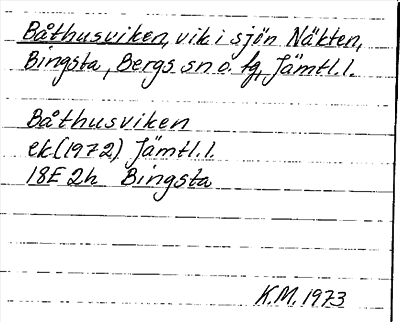 Båthusviken, vik i sjön Näkten,
Bingsta, Bergs sn o. tg, Jämtl.l.
Båthusviken
ek.(1972) Jämtl.l.
18E 2h Bingsta
K.M. 1973